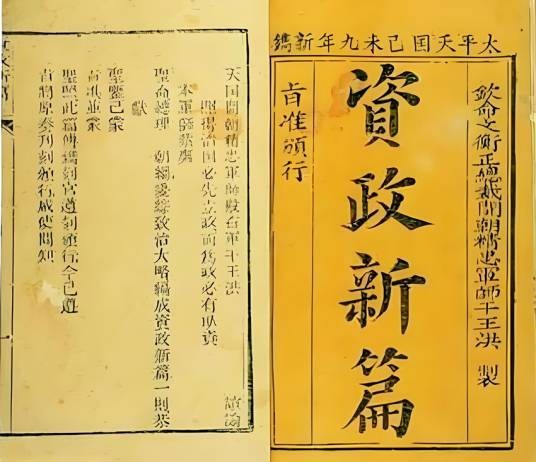 太平天囯己未九年新鐫
欽命文衡正總裁開朝精忠軍師干王洪 製
資政新篇
旨准頒行
天囯開朝精忠軍師殿右軍干王洪
照得治囯必先立政而為政必有取資
本軍師
聖命總理 朝綱爰綜致治大略編成資政新篇一則恭
獻
聖鑒已蒙
旨准並蒙
聖詔此篇傳鐫刻官遵刻頒行今已遵
旨將原奏刊刻頒行咸使聞知